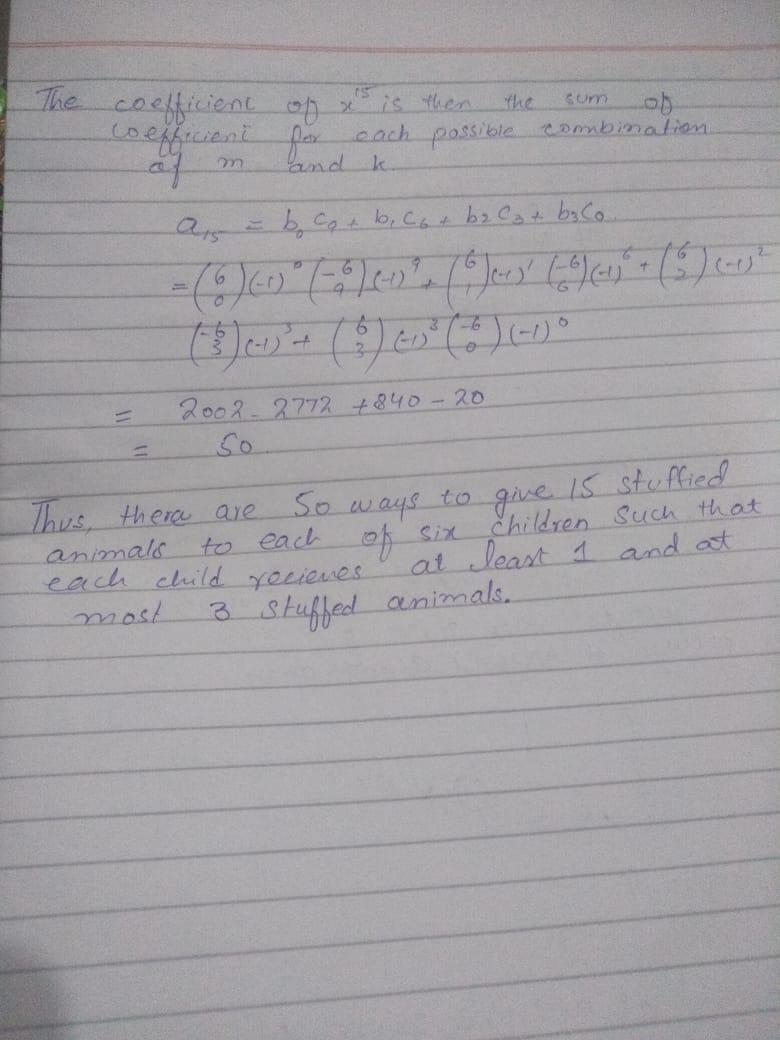 The coefficient of x¹⁵ is then the sum of
coefficient for each possible combination
of m and k.
a₁₅ = b₀ C₉ + b₁ C₆ + b₂ C₃ + b₃ C₀
= (6 0) (-1)⁰ (-6 9) (-1)⁹ + (6 1) (-1)¹ (-6 6) (-1)⁶ + (6 2) (-1)²
(-6 3) (-1)³ + (6 3) (-1)³ (-6 0) (-1)⁰
= 2002 - 2772 + 840 - 20
= 50.
Thus, thera are 50 ways to give 15 stuffied
animals to each of six children such that
each child recieves at least 1 and at
most 3 stuffed animals.